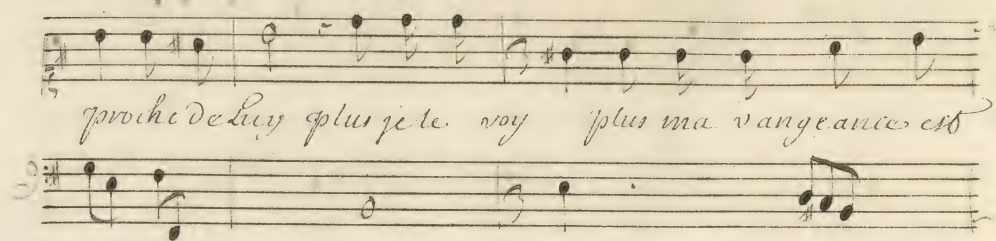 proche de Luy plus je le voy plus ma vangeance est